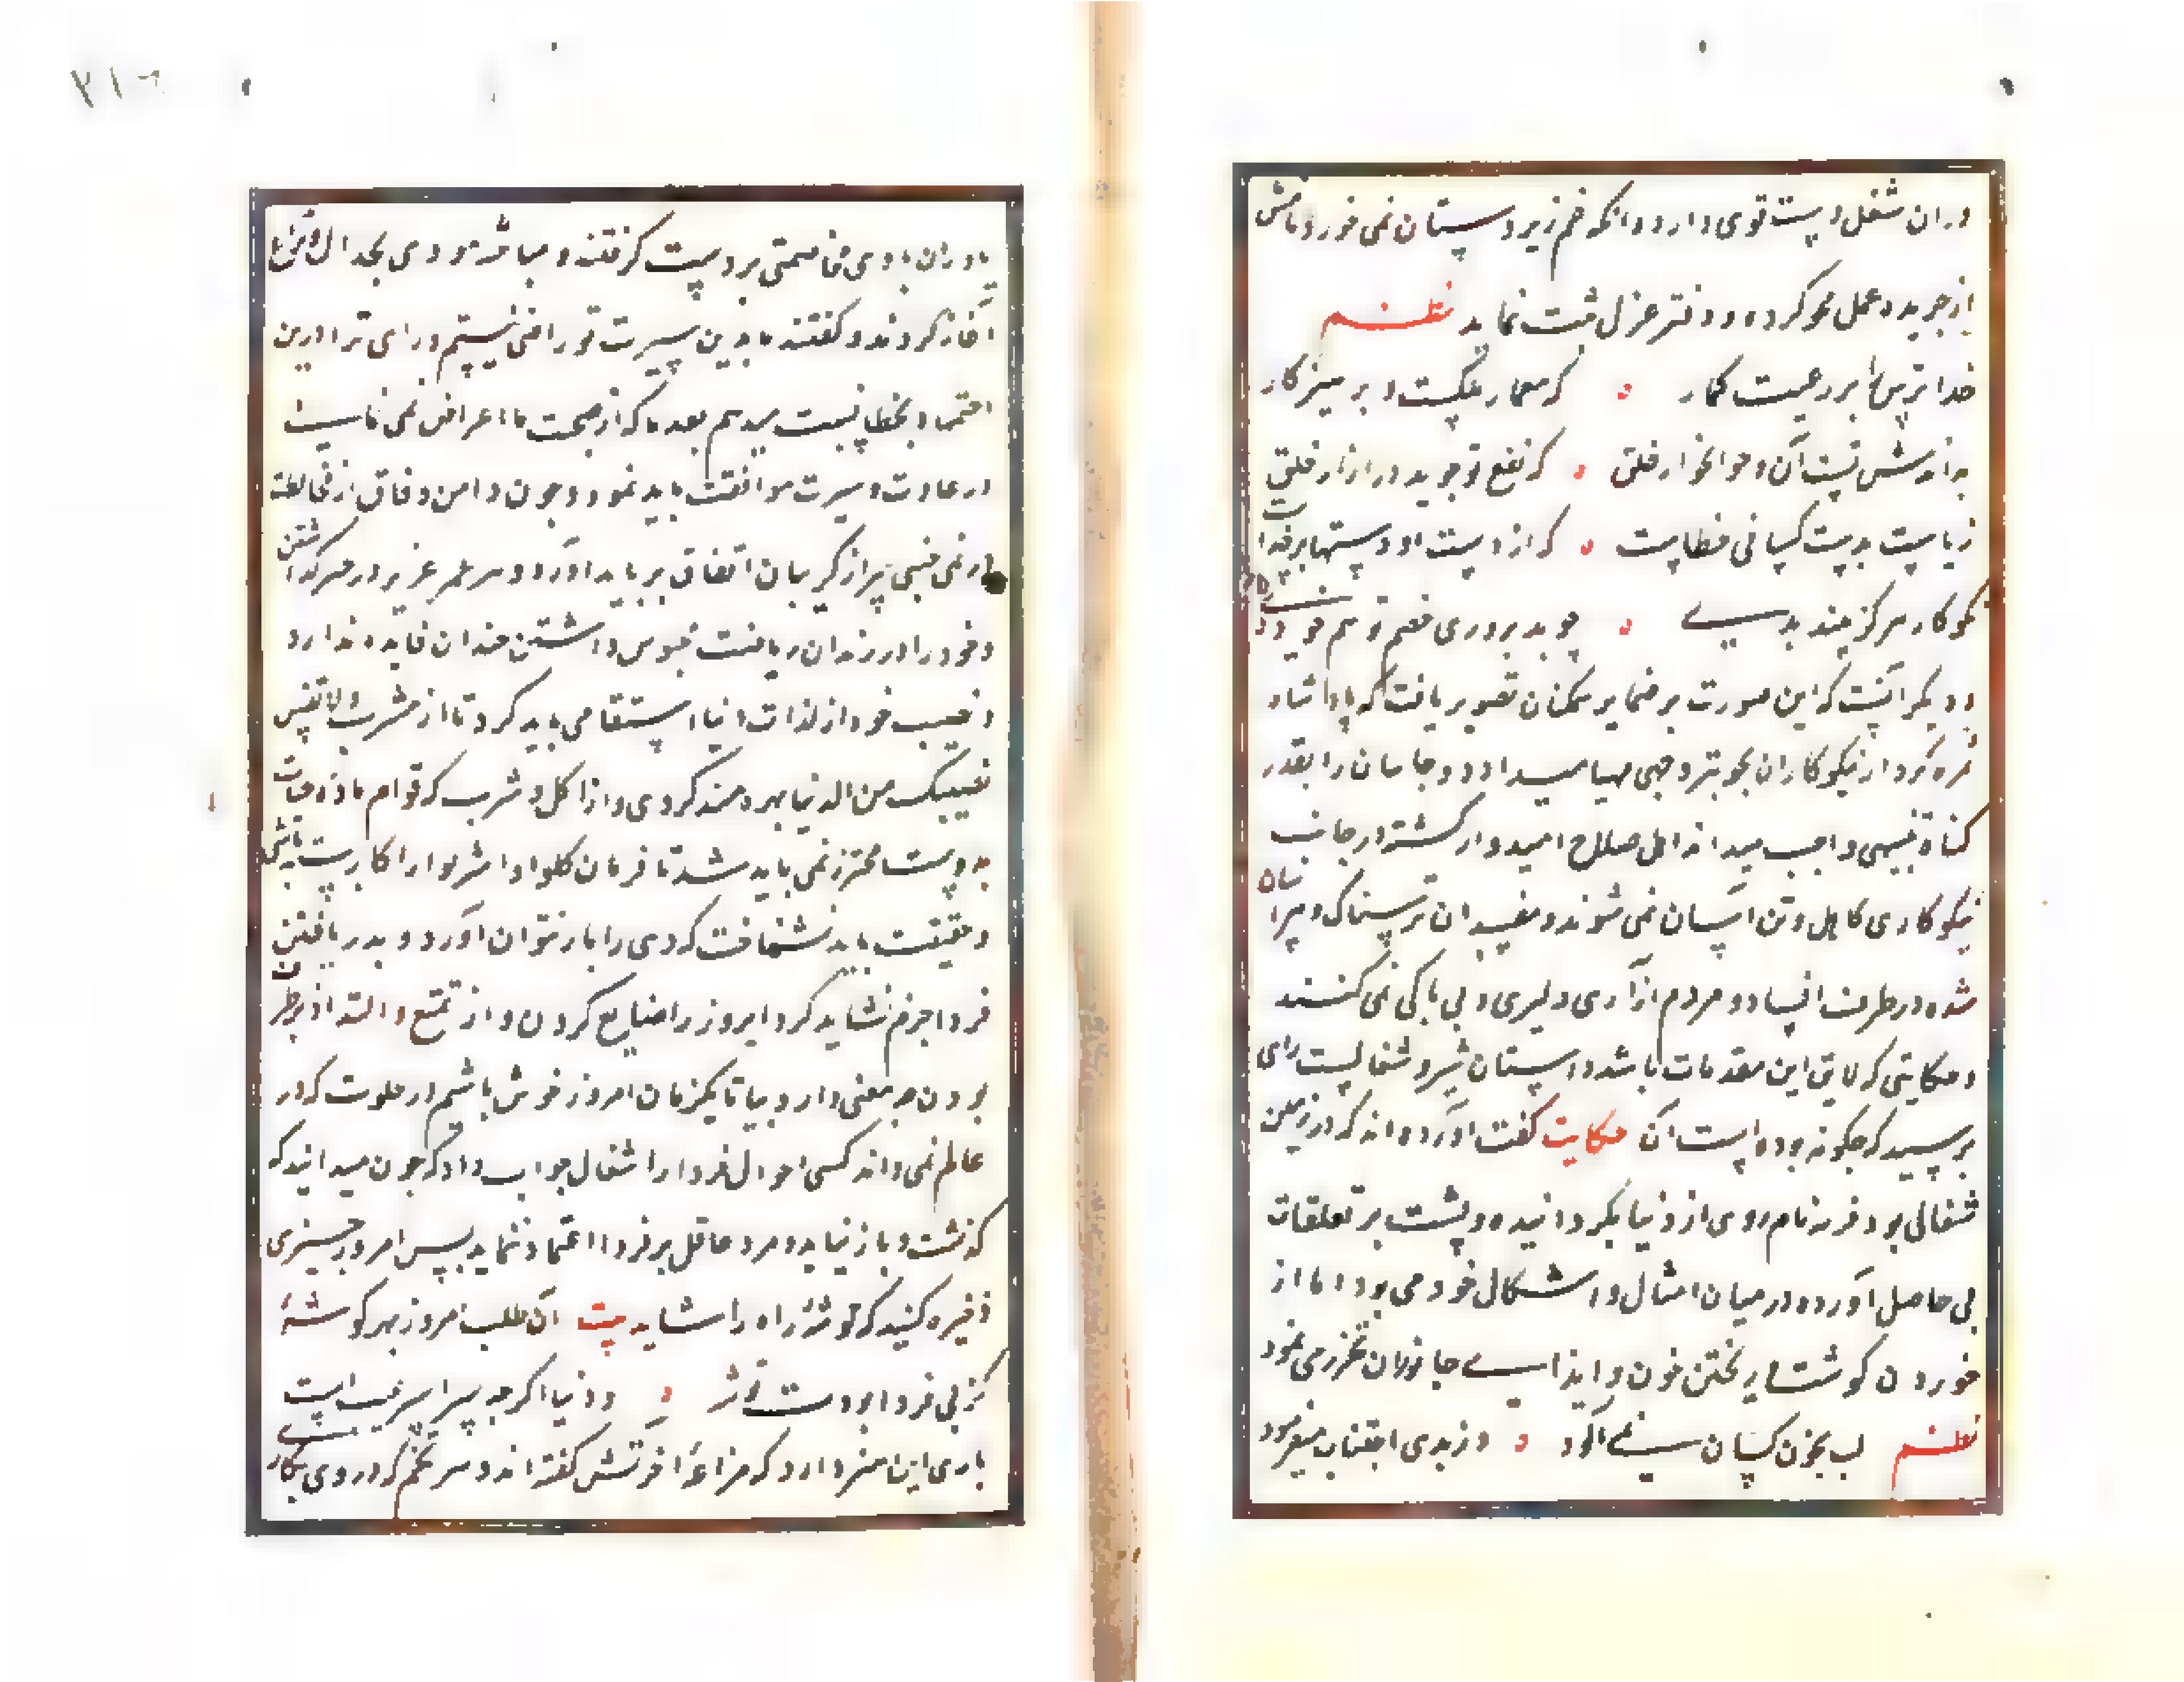 دران شغل دست قوی دارد و انکه غم زیردستان نمی خورد نامش
از جریده عمل محو کرده در دفتر عزل ثبت نماید نظم
خدا ترس را بر رعیت کمار که معمار ملکست و پرهیزکار
بداندیش تست آن و خوانخوار خلق که نفع تو جوید در ازار خلق
ریاست بدست کسانی خطاست که از دست او دستها بر خداست
نکوکار هرکز نبیند بدی چو بد پروری خصم توهم خودی
و دیکر آنست که این صورت بر ضمایر ممکنان تصویر یافت که پادشاه
ثمره کردار نیکوکاران بخوبتر وجهی مهیا میدارد و جانیان را بقدر
کناه تنبیهی واجب میداند اهل صلاح امیدوار کشته در جانب
نیکوکاری کاهل و تن آسان نمی شوند و مفسدان ترسناک و هراسان
شده در طرف افساد و مردم آزاری دلیری و بی باکی نمی کنند
و حکایتی که لایق این مقدمات باشد داستان شیر و شغالست رای
پرسید که چکونه بوده است آن حکایت کفت آورده اند که در زمین
شغالی بود فریسه نام روی از دنیا بکردانیده و پشت بر تعلقات
بی حاصل آورده در میان امثال و اشکال خود می بود اما از
خوردن کوشت و ریختن خون و ایذای جانوران تحرز می نمود
نظم لب بخون کسان نمی آلود وز بدی اجتناب میفرمود
یاران با وی مخاصمتی بر دست کرفتند و مباشره وی بجدال و نزاع
آغاز کردند و کفتند ما بدین سیرت تو راضی نیستیم و رای ترا درین
اجتهاد بخطا نسبت میدهیم بعد ما که از صحبت ما اعراض نمی نمایی
در عادت و سیرت موافقت باید نمود و چون دامن وفاق از مخالطت
در نمی چینی سر از کریبان اتفاق بر باید آورد و عمر عزیز در سر کذاشتن
و خود را در زندان ریاضت محبوس داشتن چندان فایده ندارد
و نصیب خود از لذات دنیا استیفا می باید کرد تا از مشرب و لا تنس
نصیبک من الدنیا بهره مند کردی و از اکل و شرب که قوام ماده حیات
بدوست محترز نمی باید شد تا فرمان کلوا و اشربوا را کار بسته باشی
و حقیقت باید شناخت که دی را باز نتوان آورد و بدر یافتن
فردا جزم نشاید کرد امروز را ضایع کردن و از تمتع و التذاذ بر طرف
بودن چه معنی دارد بیا تا یکزمان امروز خوش باشیم در خلوت که در
عالم نمی داند کسی احوال فردا را شغال جواب داد که چون میدانید که
کذشت و باز نیاید و مرد عاقل بر فردا اعتماد ننماید پس امروز چیزی
ذخیره کنید که توشه راه را شاید بیت آن طلب امروز بهر کوشه
کز پی فردا بودت توشه و دنیا اکرچه سراسر عیب است
باری این هنر دارد که مزرعه آخرتش کفته اند و هر تخم که در وی بکار